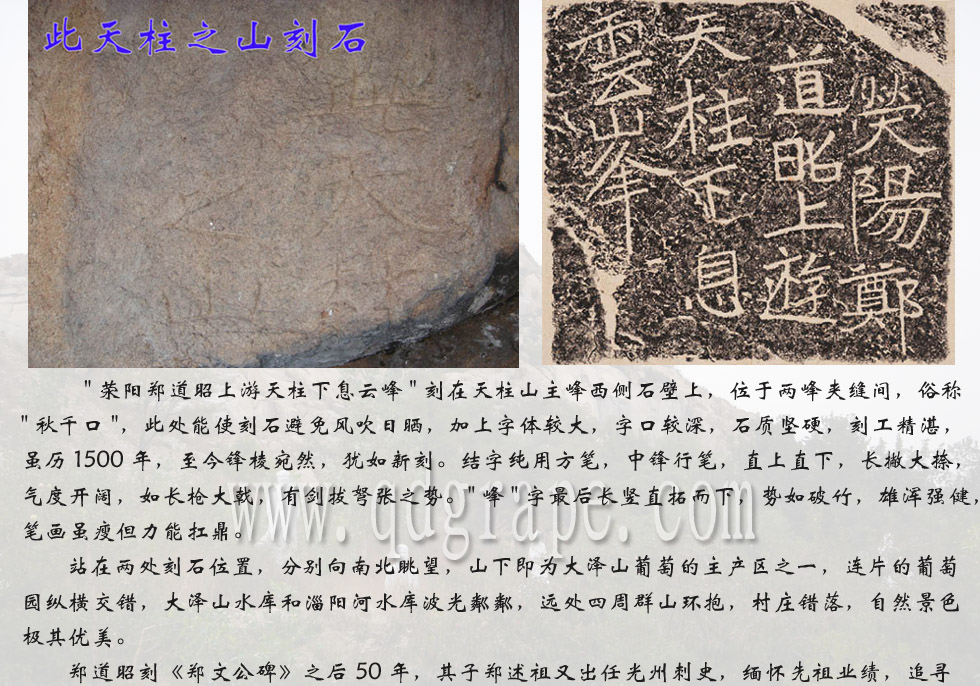 此天柱之山刻石
荧陽鄭
道昭上遊
天柱下息
雲峰
"荥阳郑道昭上游天柱下息云峰"刻在天柱山主峰西侧石壁上，位于两峰夹缝间，俗称
"秋千口"，此处能使刻石避免风吹日晒，加上字体较大，字口较深，石质坚硬，刻工精湛，
虽历1500年，至今锋棱宛然，犹如新刻。结字纯用方笔，中锋行笔，直上直下，长撇大捺，
气度开阔，如长枪大戟，有剑拔弩张之势。"峰"字最后长竖直拓而下，势如破竹，雄浑强健，
笔画虽瘦但力能扛鼎。
站在两处刻石位置，分别向南北眺望，山下即为大泽山葡萄的主产区之一，连片的葡萄
园纵横交错，大泽山水库和淄阳河水库波光粼粼，远处四周群山环抱，村庄错落，自然景色
极其优美。
郑道昭刻《郑文公碑》之后50年，其子郑述祖又出任光州刺史，缅怀先祖业绩，追寻
www.qdgrape.com